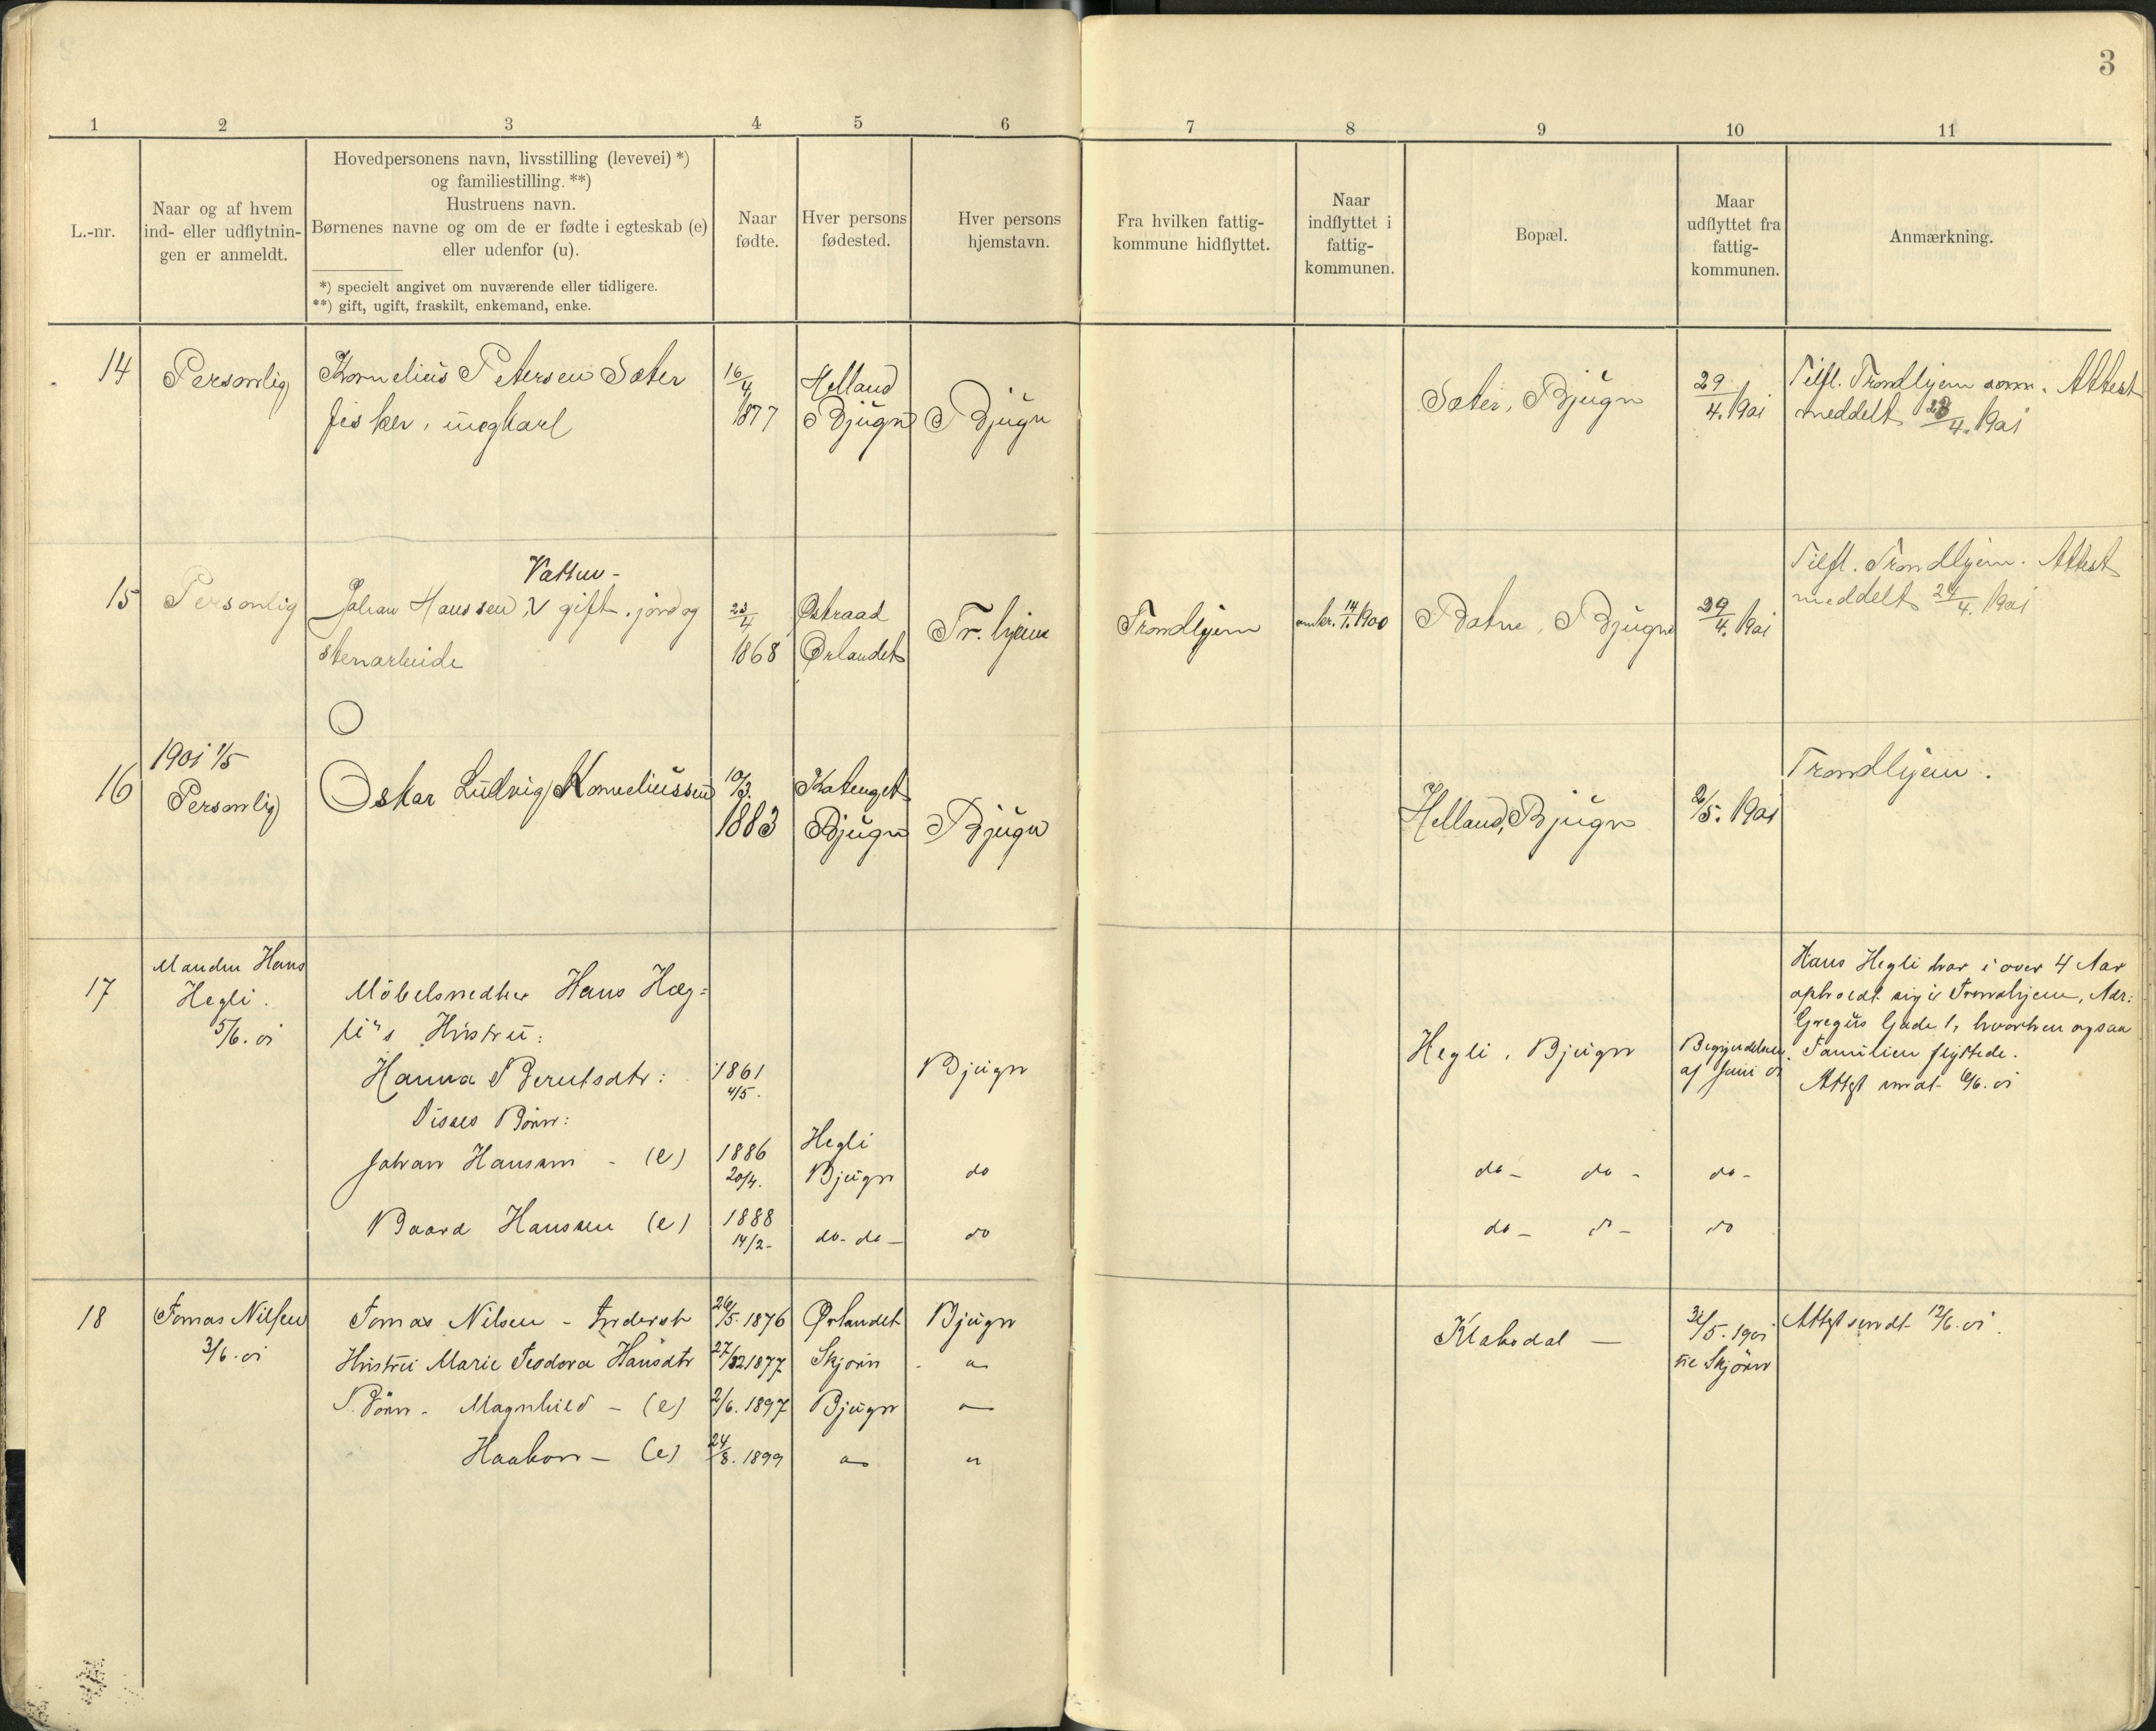 3
1 2 3 4 5 6 7 8 9 10 11
L.-nr.
Naar og af hvem
ind- eller udflytnin-
gen er anmeldt.
Hovedpersonens navn, livsstilling (levevei) *)
og familiestilling. **)
Hustruens navn.
Børnenes navne og om de er fødte i egteskab (e)
eller udenfor (u).
*) specielt angivet om nuværende eller tidligere.
**) gift, ugift, fraskilt, enkemand, enke.
Naar
fødte.
Hver persons
fødested.
Hver persons
hjemstavn.
Fra hvilken fattig-
kommune hidflyttet.
Naar
indflyttet i
fattig-
kommunen.
Bopæl.
Maar
udflyttet fra
fattig-
kommunen.
Anmærkning.
14
Personlig
Kornelius Petersen Sæter
fisker, ungkarl
16/4
1877
Helland
Bjugn
Bjugn
Sæter, Bjugn
29/4. 1901
Tilfl. Trondhjem Attest
meddelt /4. 1901
15
Personlig
Johan Hanssen, gift. jord og
stenarbeide
23/4
1868
Østraad
Ørlandet
Tr. hjem
Trondhjem
omkr. 14/1. 1900
Botne, Bjugn
29/4. 1901
Tilfl. Trondhjem. Attest
meddelt 29/4. 1901
16
1901 1/5
Personlig
Oskar Ludvig Korneliussen
10/3.
1883
Bjugn
Bjugn
Helland, Bjugn
2/5. 1901
Trondhjem.
17
Manden Hans
Hegli.
5/6. 01
Möbelsnedker Hans Hæg=
li's Hustru:
Hanna Berntsdtr:
1861
4/5.
Bjugn
Hegli, Bjugn
Begyndelsen
af Juni 01
Hans Hegli har i over 4 Aar
opholdt sig i Trondhjem, Adr:
Gregus Gade 1, hvorhen ogsaa
Familien flyttede.
Attest sendt 6/6. 01
Disses Börn:
Johan Hansen - (e)
1886
20/4.
Hegli
Bjugn
do
do - do - do -
Baard Hansen (e)
1888
14/2 -
do - do -
do
do - do - do
18
Tomas Nilsen
3/6. 01
Tomas Nilsen - Inderst
26/5. 1876
Ørlandet
Bjugn
Klaksdal —
31/5. 1901
til Skjörn
Attest sendt 12/6. 01.
Hustru Marie Teodora Hansdtr
27/12 1877
Skjörn
"
Börn - Magnhild - (e)
2/6. 1897
Bjugn
"
Haakon - (e)
24/8. 1899
"
"